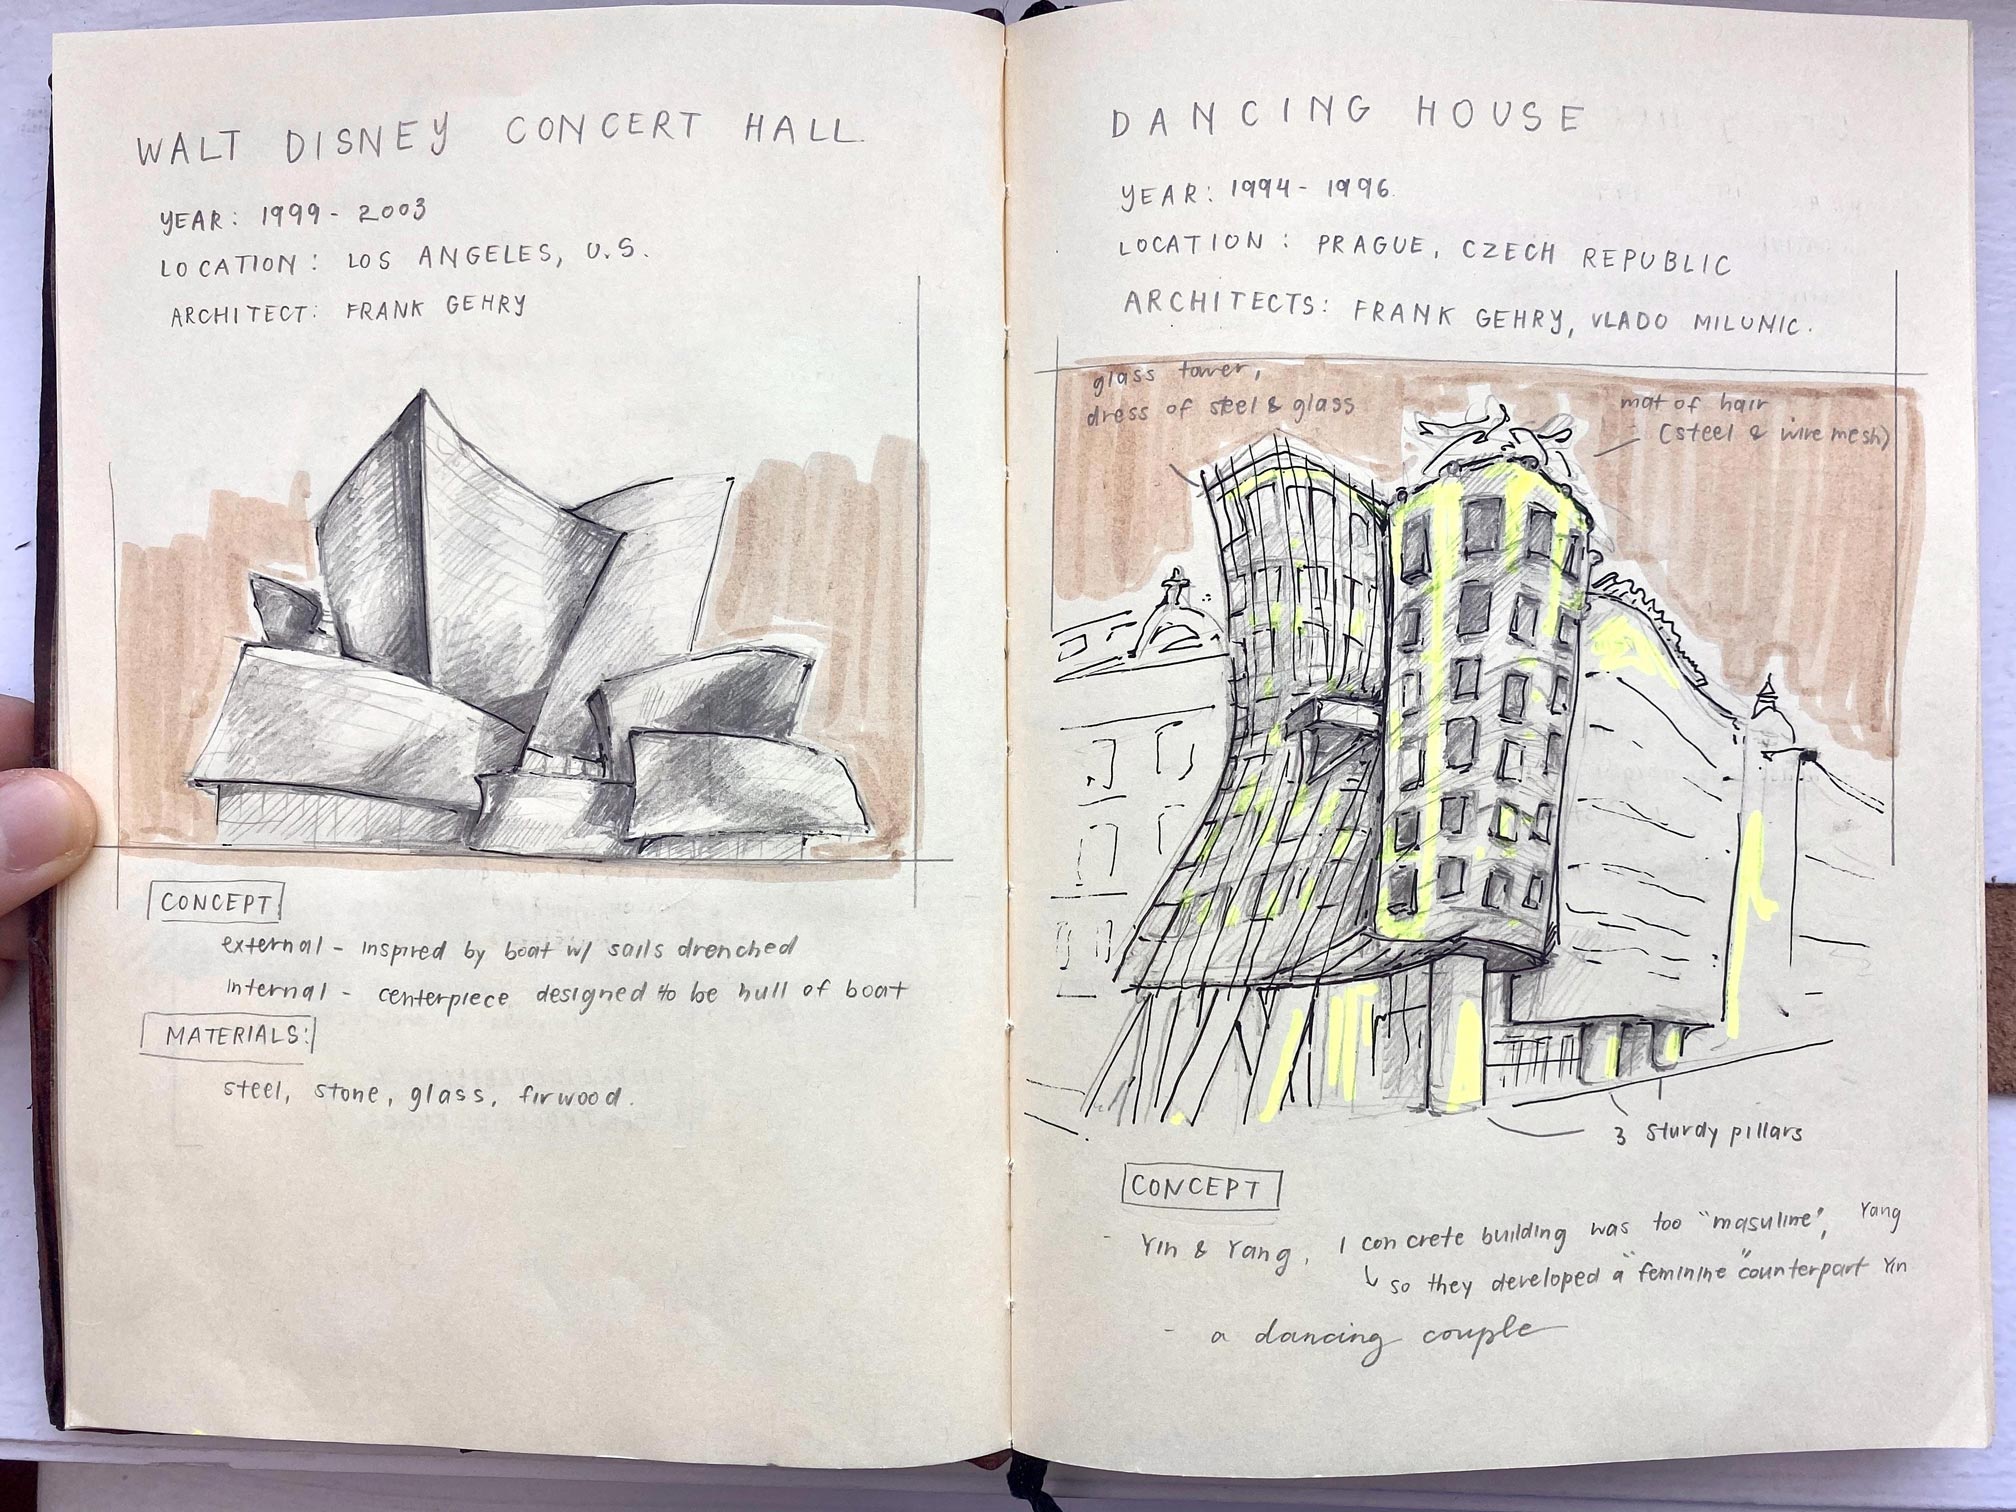 WALT DISNEY CONCERT HALL
YEAR: 1999 - 2003
LOCATION: LOS ANGELES, U.S.
ARCHITECT: FRANK GEHRY
CONCEPT
external - inspired by boat w/ sails drenched
internal - centerpiece designed to be hull of boat
MATERIALS:
steel, stone, glass, firwood.
DANCING HOUSE
YEAR: 1994 - 1996
LOCATION: PRAGUE, CZECH REPUBLIC
ARCHITECTS: FRANK GEHRY, VLADO MILUNIC.
glass tower,
dress of steel & glass
mat of hair
(steel & wire mesh)
3 sturdy pillars
CONCEPT
- Yin & Yang, 1 concrete building was too "masuline", Yang
↳ so they developed a "feminine" counterpart Yin
- a dancing couple